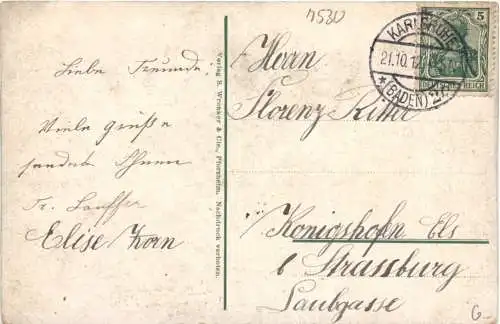 Liebe Freunde
Viele Grüße
sendet Ihnen
Fr. Lauffer
Elise Korn
Verlag S. Wronker & Cie., Pforzheim. Nachdruck verboten.
1530
KARLSRUHE
21.10.12
* (BADEN) 2
5
Herrn
Florenz Ritter
Königshofen Els
b Strassburg
Laubgasse
G-